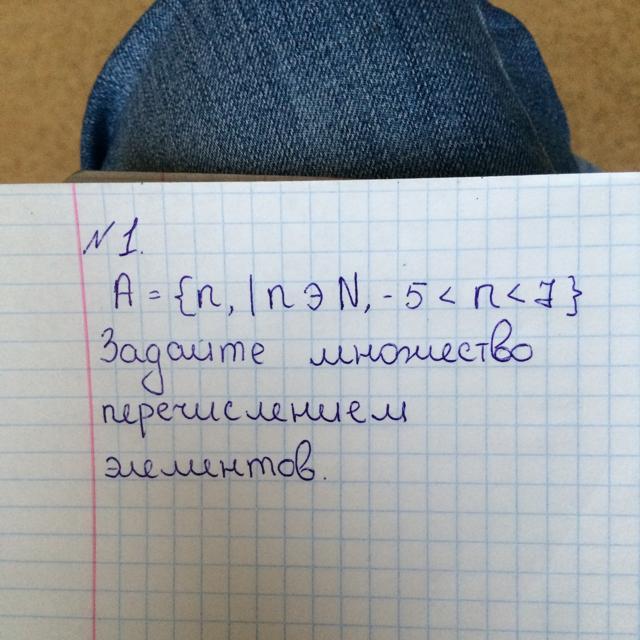 №1.
A = {n, | n э N, - 5 < n < 7}
Задайте множество
перечислением
элементов.